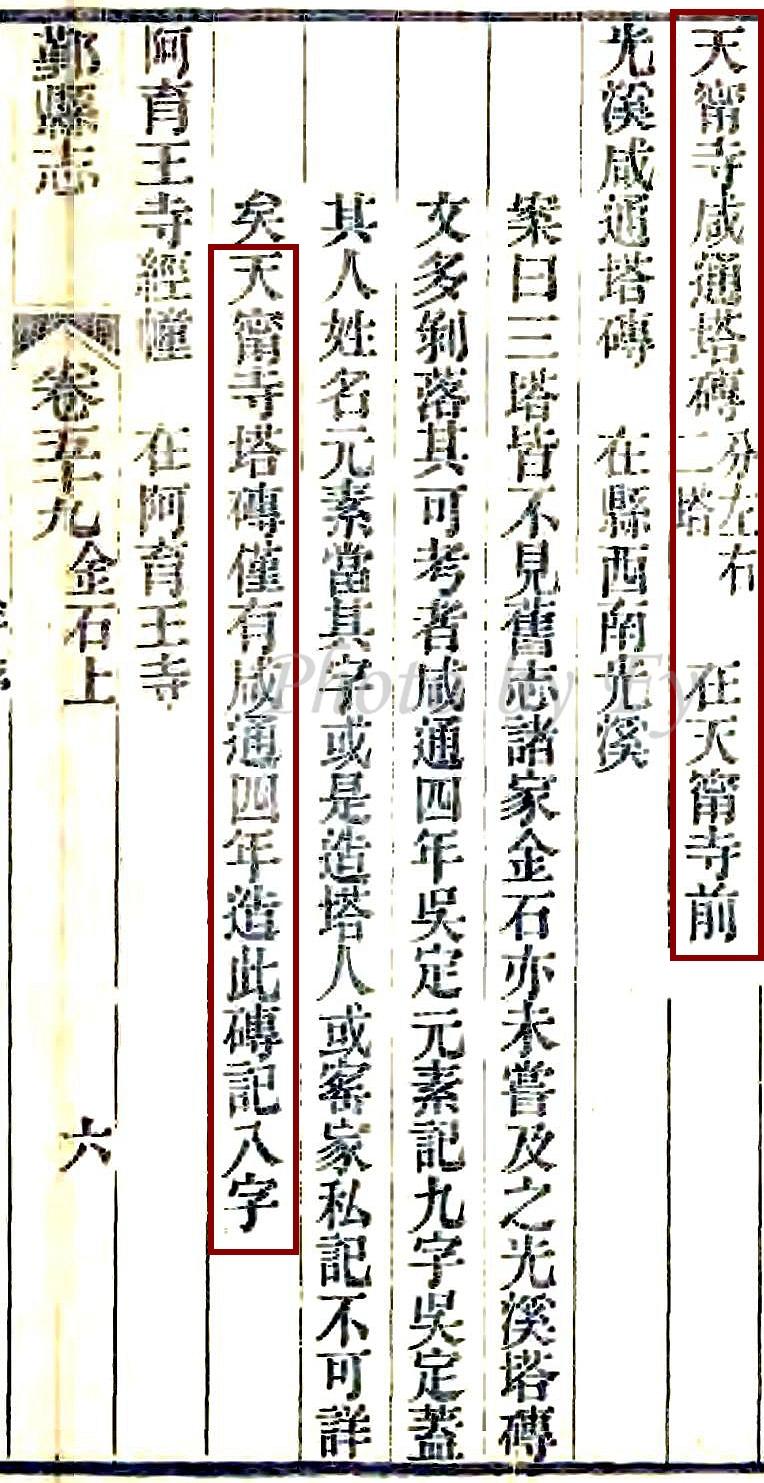 天甯寺咸通塔磚 分左右二塔 在天甯寺前
光溪咸通塔磚 在縣西南光溪
案曰三塔皆不見舊志諸家金石亦未嘗及之光溪塔磚
文多剝落其可考者咸通四年吳定元素記九字吳定蓋
其人姓名元素當其字或是造塔人或窰家私記不可詳
矣天甯寺塔磚僅有咸通四年造此磚記八字
阿育王寺經幢 在阿育王寺
鄞縣志 卷五十九 金石上 六
Photo by Ey